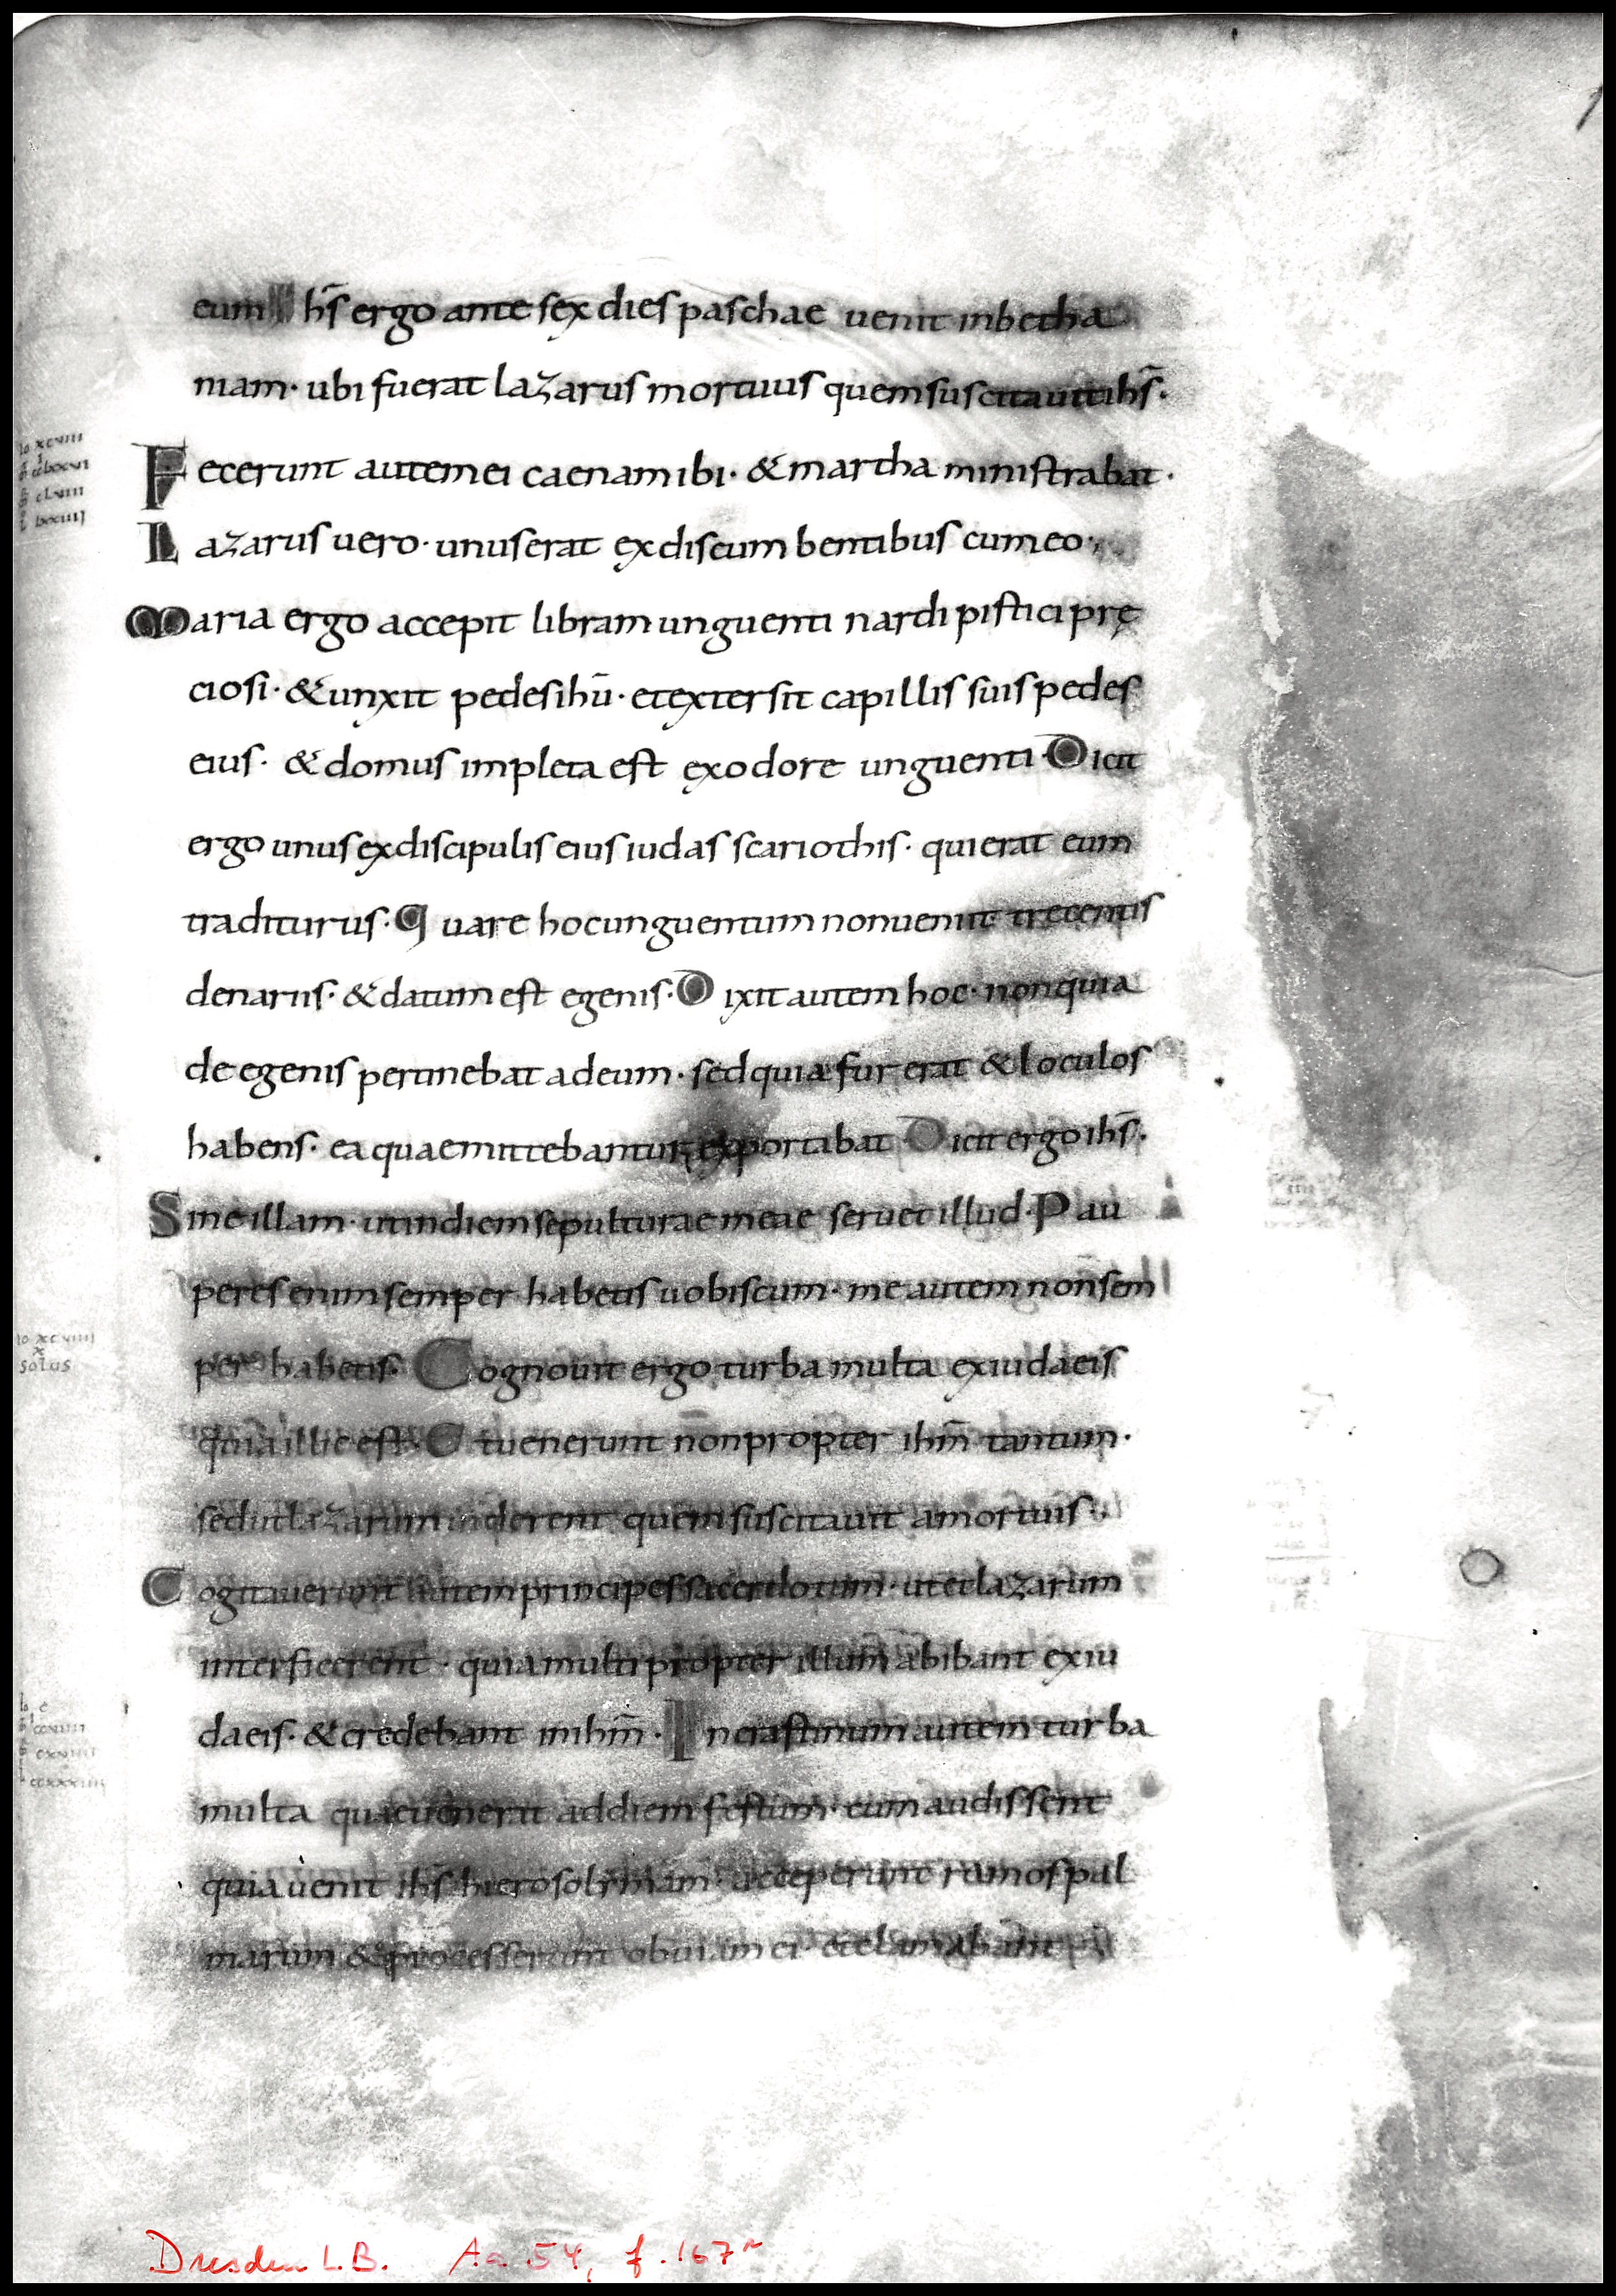 eum Ihs̄ ergo ante sex dies paschae uenit inbetha
niam· ubi fuerat lazarus mortuus quem suscitauit ihs̄·
Fecerunt autem ei caenam ibi· & martha ministrabat·
Lazarus uero· unus erat ex discumbentibus cum eo·
Maria ergo accepit libram unguenti nardi pistici prę
ciosi· & unxit pedes ihū· et extersit capillis suis pedes
eius· & domus impleta est ex odore unguenti· Dicit
ergo unus ex discipulis eius iudas scariothis· qui erat eum
traditurus· Quare hoc unguentum non uenit trecentis
denariis· & datum est egenis· Dixit autem hoc· non quia
de egenis pertinebat ad eum· sed quia fur erat & loculos
habens· ea quae mittebantur exportabat· Dicit ergo ihs̄·
Sine illam· ut in diem sepulturae meae seruet illud· Pau
peres enim semper habetis uobiscum· me autem non sem
per habetis· Cognouit ergo turba multa ex iudaeis
quia illic est· Et uenerunt non propter ihm̄ tantum·
sed ut lazarum uiderent quem suscitauit a mortuis·
Cogitauerunt autem principes sacerdotum· ut et lazarum
interficerent· quia multi propter illum abibant ex iu
daeis· & credebant in ihm̄· In crastinum autem turba
multa quae uenerat ad diem festum· cum audissent
quia uenit ihs̄ hierosolymam· acceperunt ramos pal
marum & processerunt obuiam ei· et clamabant
Io XCVIIII
X
SOLUS
Dresden L.B. Aa 54, f. 167r